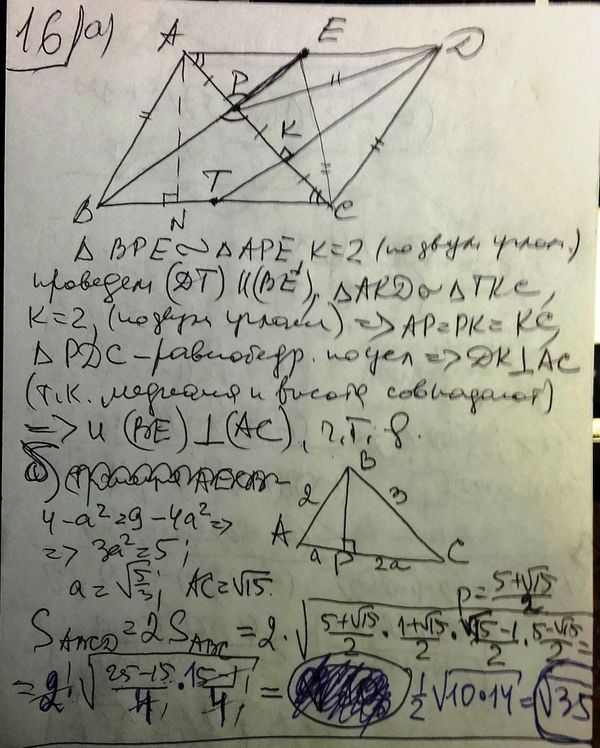 16 а)
A E D
P
K
B N T C
Δ BPE ~ Δ APE, K=2 (по двум углам)
проведем (DT) || (BE), Δ AKD ~ Δ TKC,
K=2, (по двум углам) => AP=PK=KC,
Δ PDC – равнобедр. по усл => DK⊥AC
(т.к. медиана и высота совпадают)
=> и (BE) ⊥ (AC), ч.т.д.
б)
B
2 3
A a P 2a C
4-a²=9-4a² =>
=> 3a²=5;
a=√5/3; AC=√15.
p=(5+√15)/2
S ABCD = 2 S ABC = 2·√((5+√15)/2 · (1+√15)/2 · (√15-1)/2 · (5-√15)/2) =
= 2·√((25-15)/4 · (15-1)/4) = 1/2 √10·14 = √35